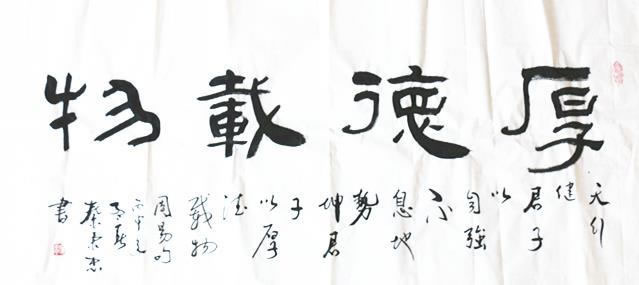 厚德載物
天行
健
君子
以
自強
不
息地
勢
坤君
子
以厚
德
載物
周易句
丙申
書